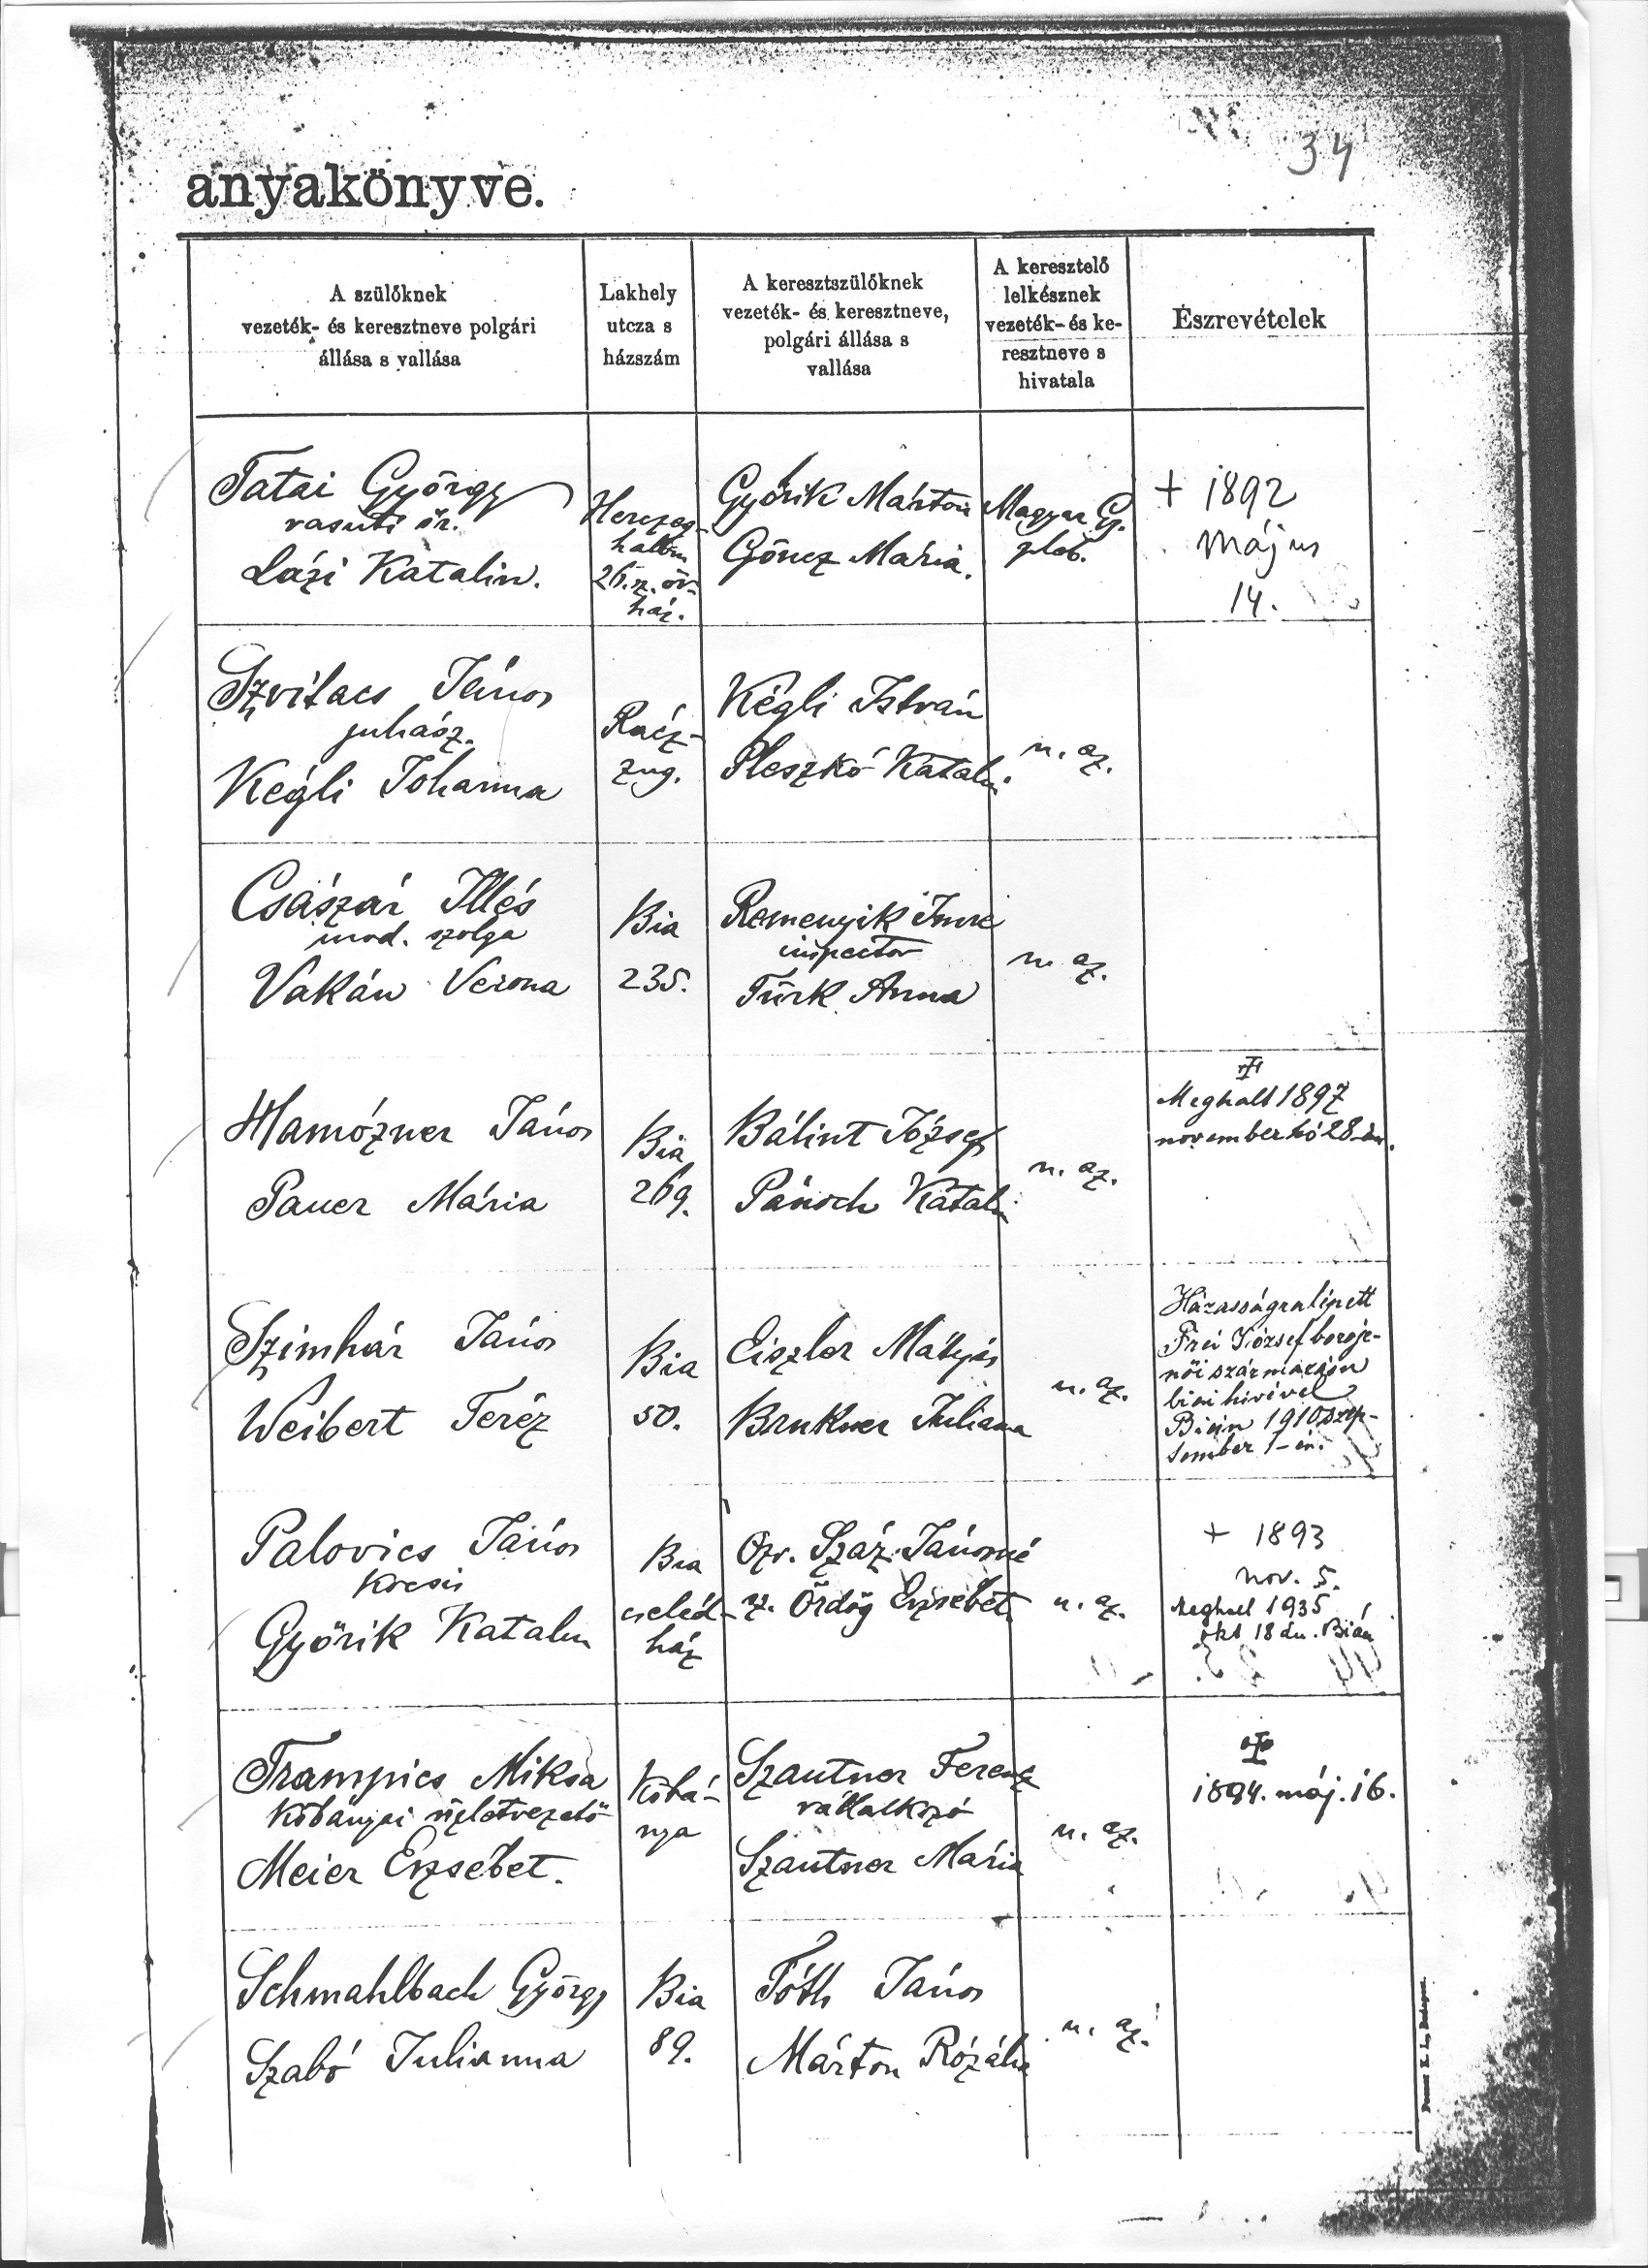 34
anyakönyve.
A szülőknek
vezeték- és keresztneve polgári
állása s vallása
Lakhely
utcza s
házszám
A keresztszülőknek
vezeték- és keresztneve,
polgári állása s
vallása
A keresztelő
lelkésznek
vezeték- és ke-
resztneve s
hivatala
Észrevételek
Tatai György
vasuti őr.
Lázi Katalin.
Herczeg-
halom
26. sz. őr-
ház.
Győrik Márton
Göncz Mária.
Magyar Gy.
pleb.
+ 1892
Május
14.
Szvitacs János
juhász.
Kégli Johanna
Rácz-
zug.
Kégli István
Pleszkó Katalin
u. az.
Császár Illés
urod. szolga
Vakán Verona
Bia
235.
Remenyik Imre
inspector
Türk Anna
u. az.
Hamózner János
Pauer Mária
Bia
269.
Bálint József
Pánoch Katalin
u. az.
Meghalt 1897
november hó 28-án.
Szimhár János
Weibert Teréz
Bia
50.
Eiszler Mátyás
Brukner Juliana
u. az.
Házasságra lépett
Frei József borosje-
női származású
biai hivével
Bián 1910 szep-
tember 1-én.
Palovics János
kocsis
Győrik Katalin
Bia
cseléd-
ház
Özv. Száz Jánosné
sz. Ördög Erzsébet
u. az.
+ 1893
nov. 5.
Meghalt 1935
okt 18 án. Bián
Trampics Miksa
kőbányai üzletvezető
Meier Erzsébet.
Kőbá-
nya
Szautner Ferencz
vállalkozó
Szautner Mária
u. az.
1894. máj. 16.
Schmahlbach György
Szabó Julianna
Bia
89.
Tóth János
Márton Rózália
u. az.